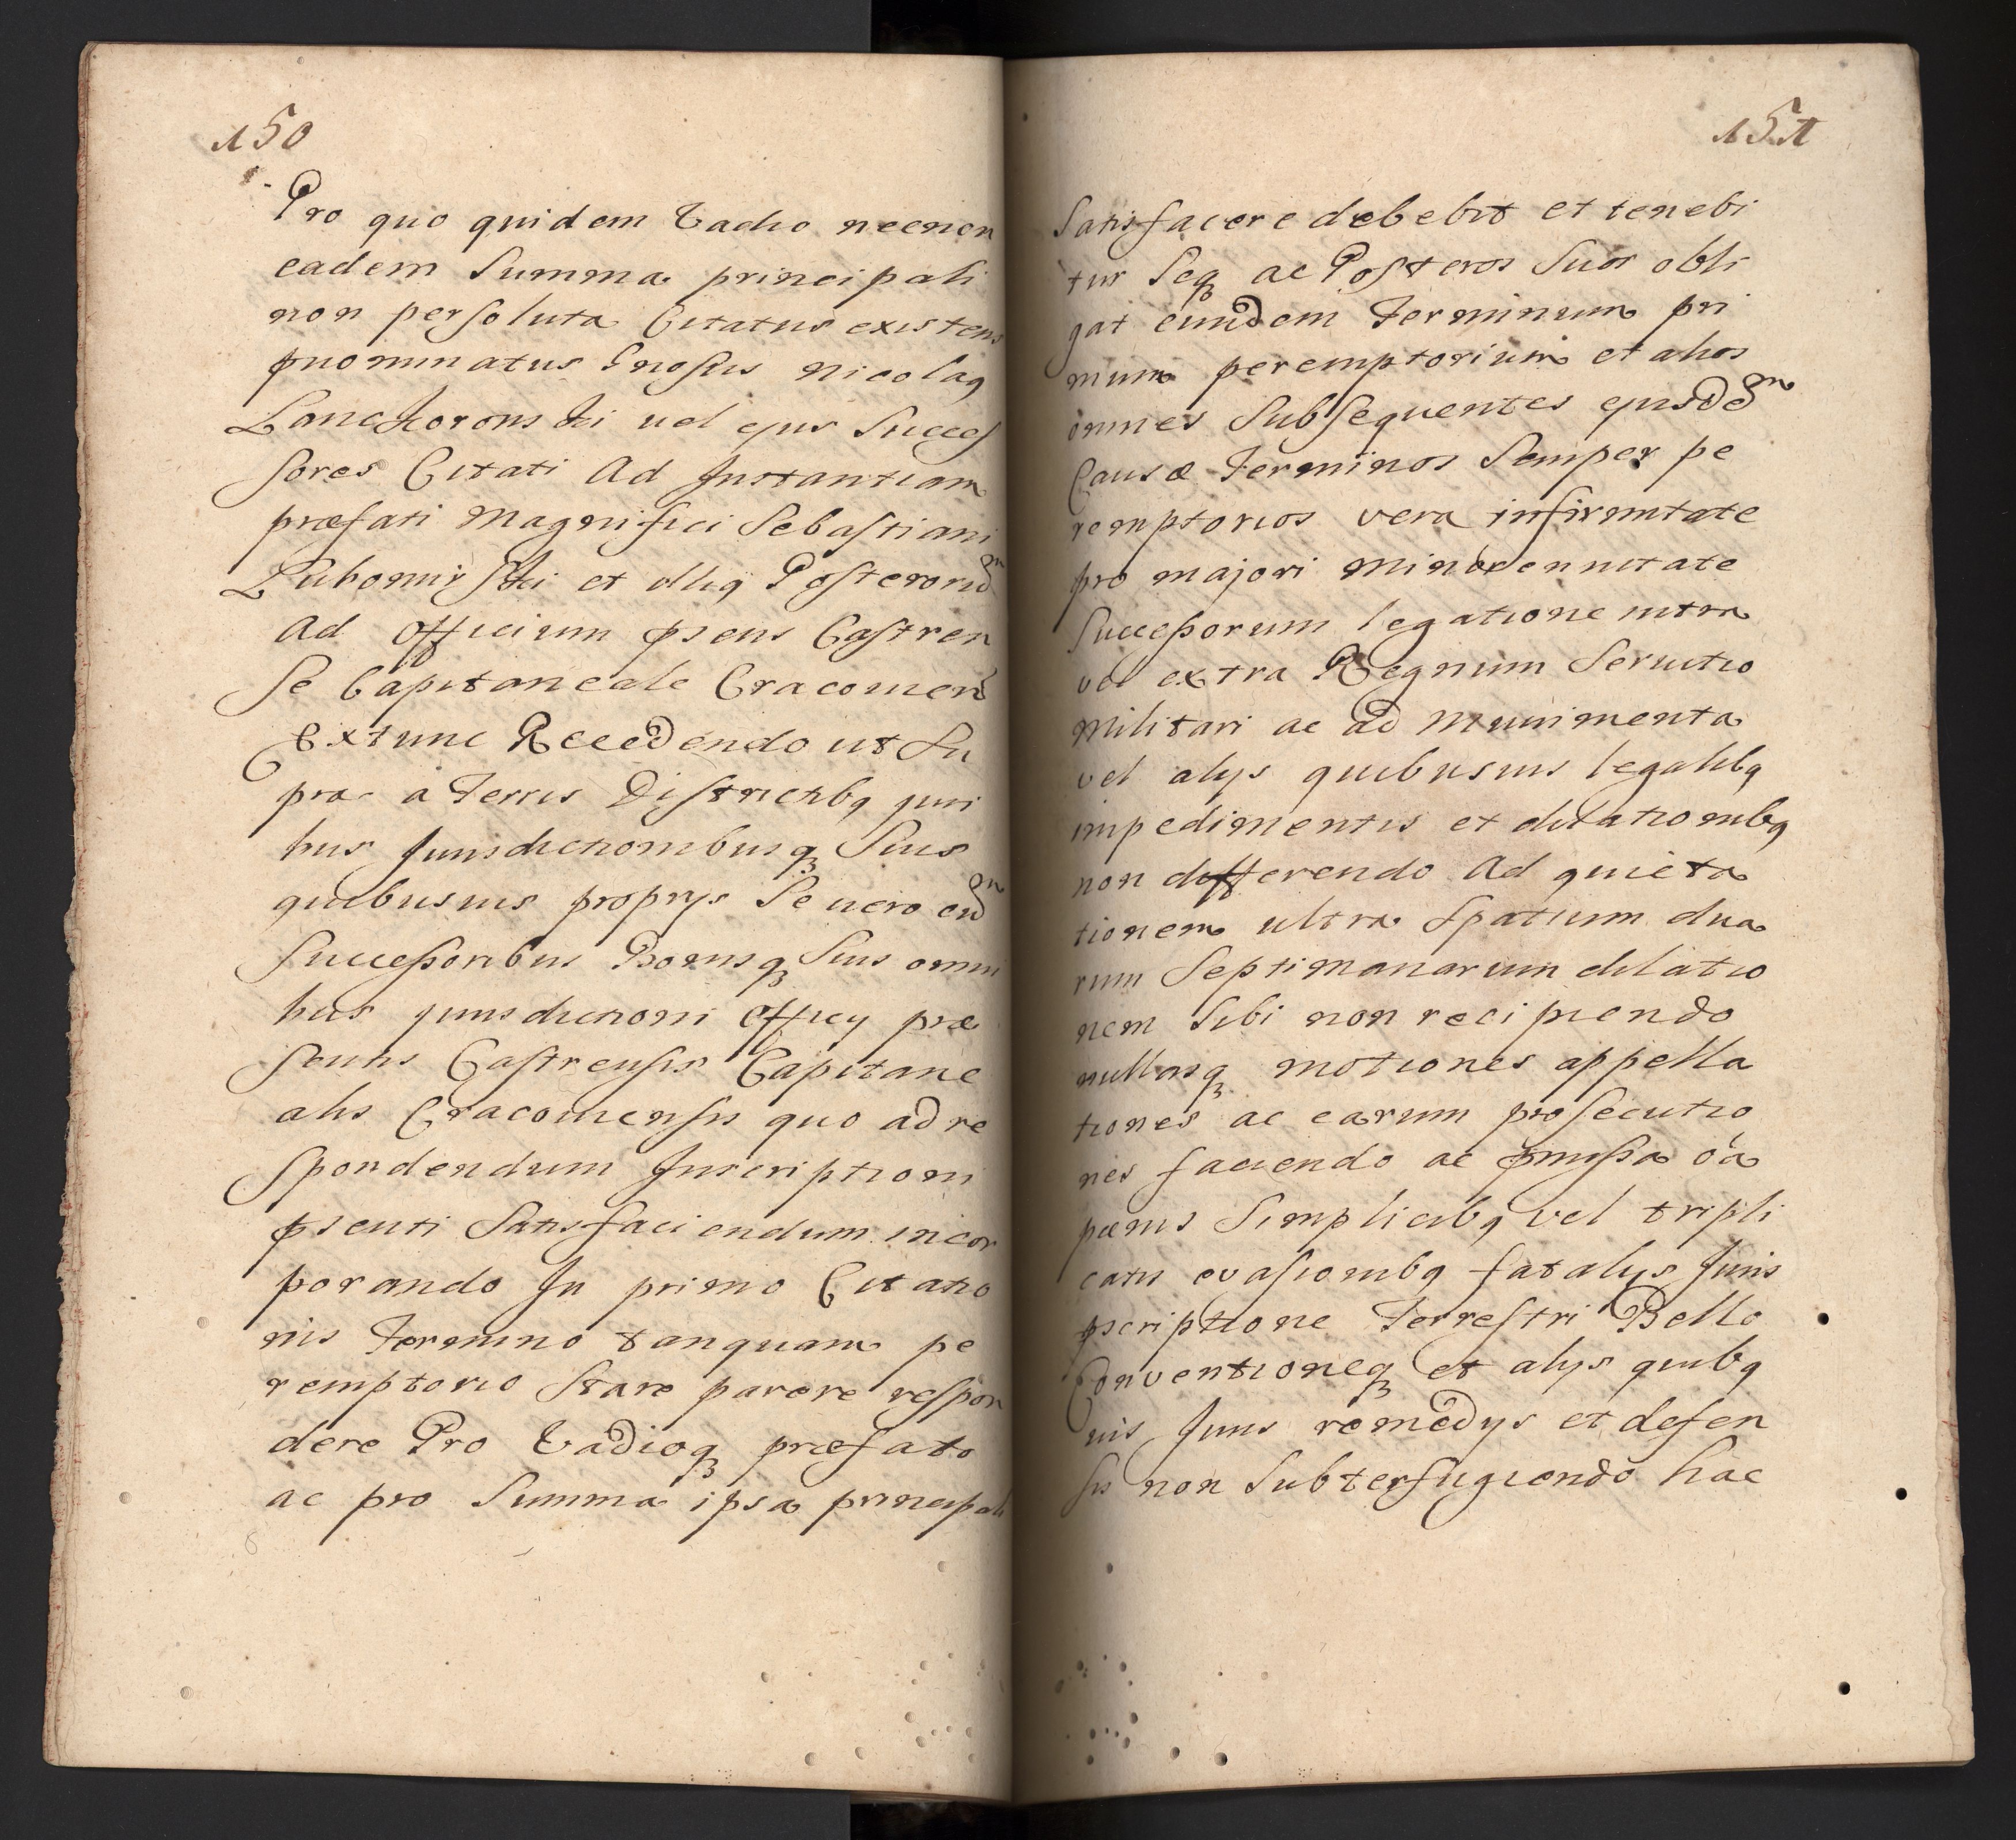 150
Pro quo quidem Vadio necnon
eadem Summa principali
non persoluta Citatus existens
pnominatus Gnosus Nicolaq
Lanckoronski uel ejus Succes
sores Citati Ad Instantiam
præfati Magnifici Sebastiani
Lubomirski et illiq Posterorũ
Ad Officium psens Castren
se Capitaneale Cracouien
Extunc Recedendo ut Su
pra a Terris Districtibq juri
bus Jurisdictionibusq Suis
quibusuis proprijs Se uero cũ
Successoribus Bonisq Suis omni
bus jurisdictioni Officij præ
sentis Castrensis Capitane
alis Cracouiensis quo ad re
spondendum Inscriptioni
psenti Satisfaciendum incor
porando In primo Citatio
nis Termino tanquam pe
remptorio Stare parere respon
dere Pro Vadioq præfato
ac pro Summa ipsa principali
151
Satisfacere debebit et tenebi
tur Seq ac Posteros Suos obli
gat eundem Terminum pri
mum peremptorium et alios
omnes Subsequentes ejusdem
Causæ Terminos Semper pe
remptorios vera infirmitate
pro majori Minorennitate
Successorum legatione intra
vel extra Regnum Seruitio
Militari ac ad Munimenta
vel alijs quibusuis legalibq
impedimentis et dilationibq
non differendo Ad quieta
tionem ultra Spatium dua
rum Septimanarum dilatio
nem Sibi non recipiendo
nullasq motiones appella
tiones ac earum prosecutio
nes faciendo ac pmissa oa
pænis Simplicibq vel tripli
catis evasionibq fatalijs Juris
pscriptione Terrestri Bello
Conventioneq et alijs quibq
uis Juris remedijs et defen
sis non Subterfugiendo hac